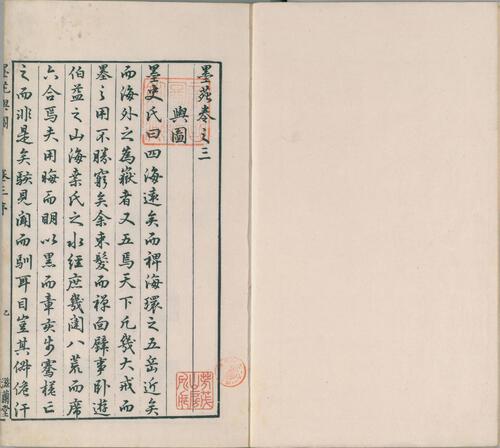 墨苑卷之三
輿圖
墨史氏曰四海遠矣而裨海環之五岳近矣
而海外之為嶽者又五焉天下凡幾大戒而
墨之用不勝窮矣余束髮而禪面壁事卧遊
伯益之山海桑氏之水經庶幾闔八荒而席
六合焉夫用晦而明以黑而章亥步騫槎亡
之而非是矣駭見聞而馴耳目豈其僻佹汗
墨苑輿圖 卷三序
滋蘭堂